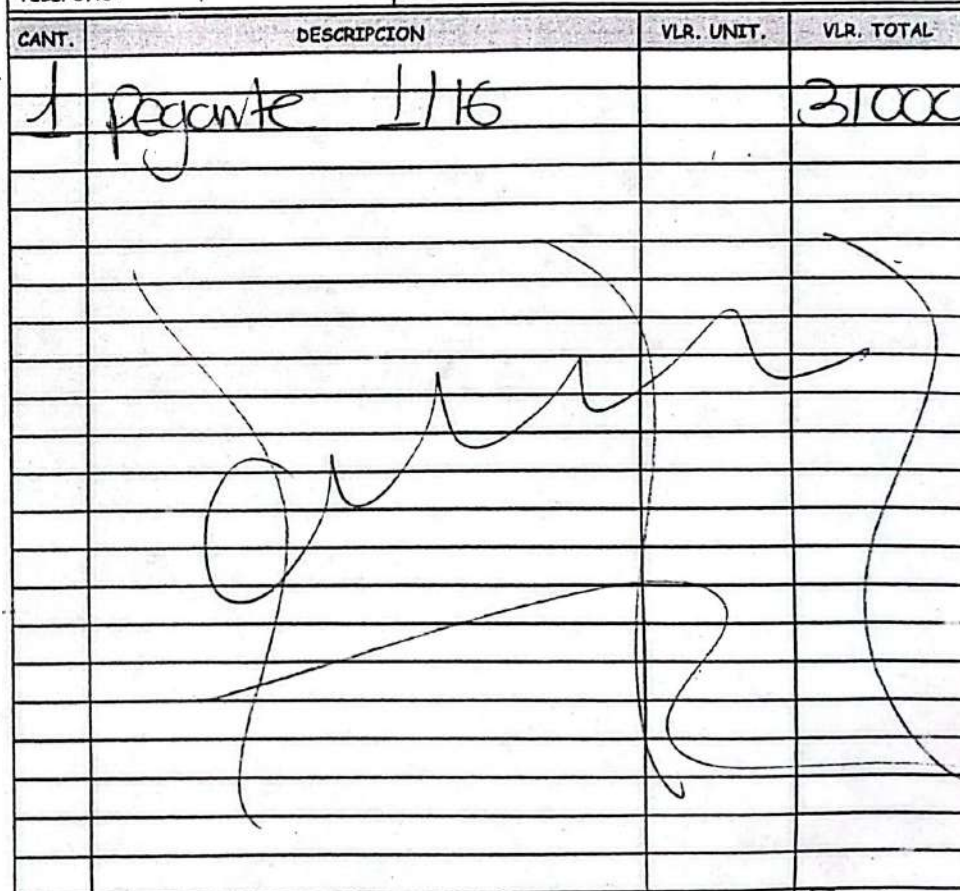 CANT. DESCRIPCION VLR. UNIT. VLR. TOTAL
1 pegante 1/16 31000